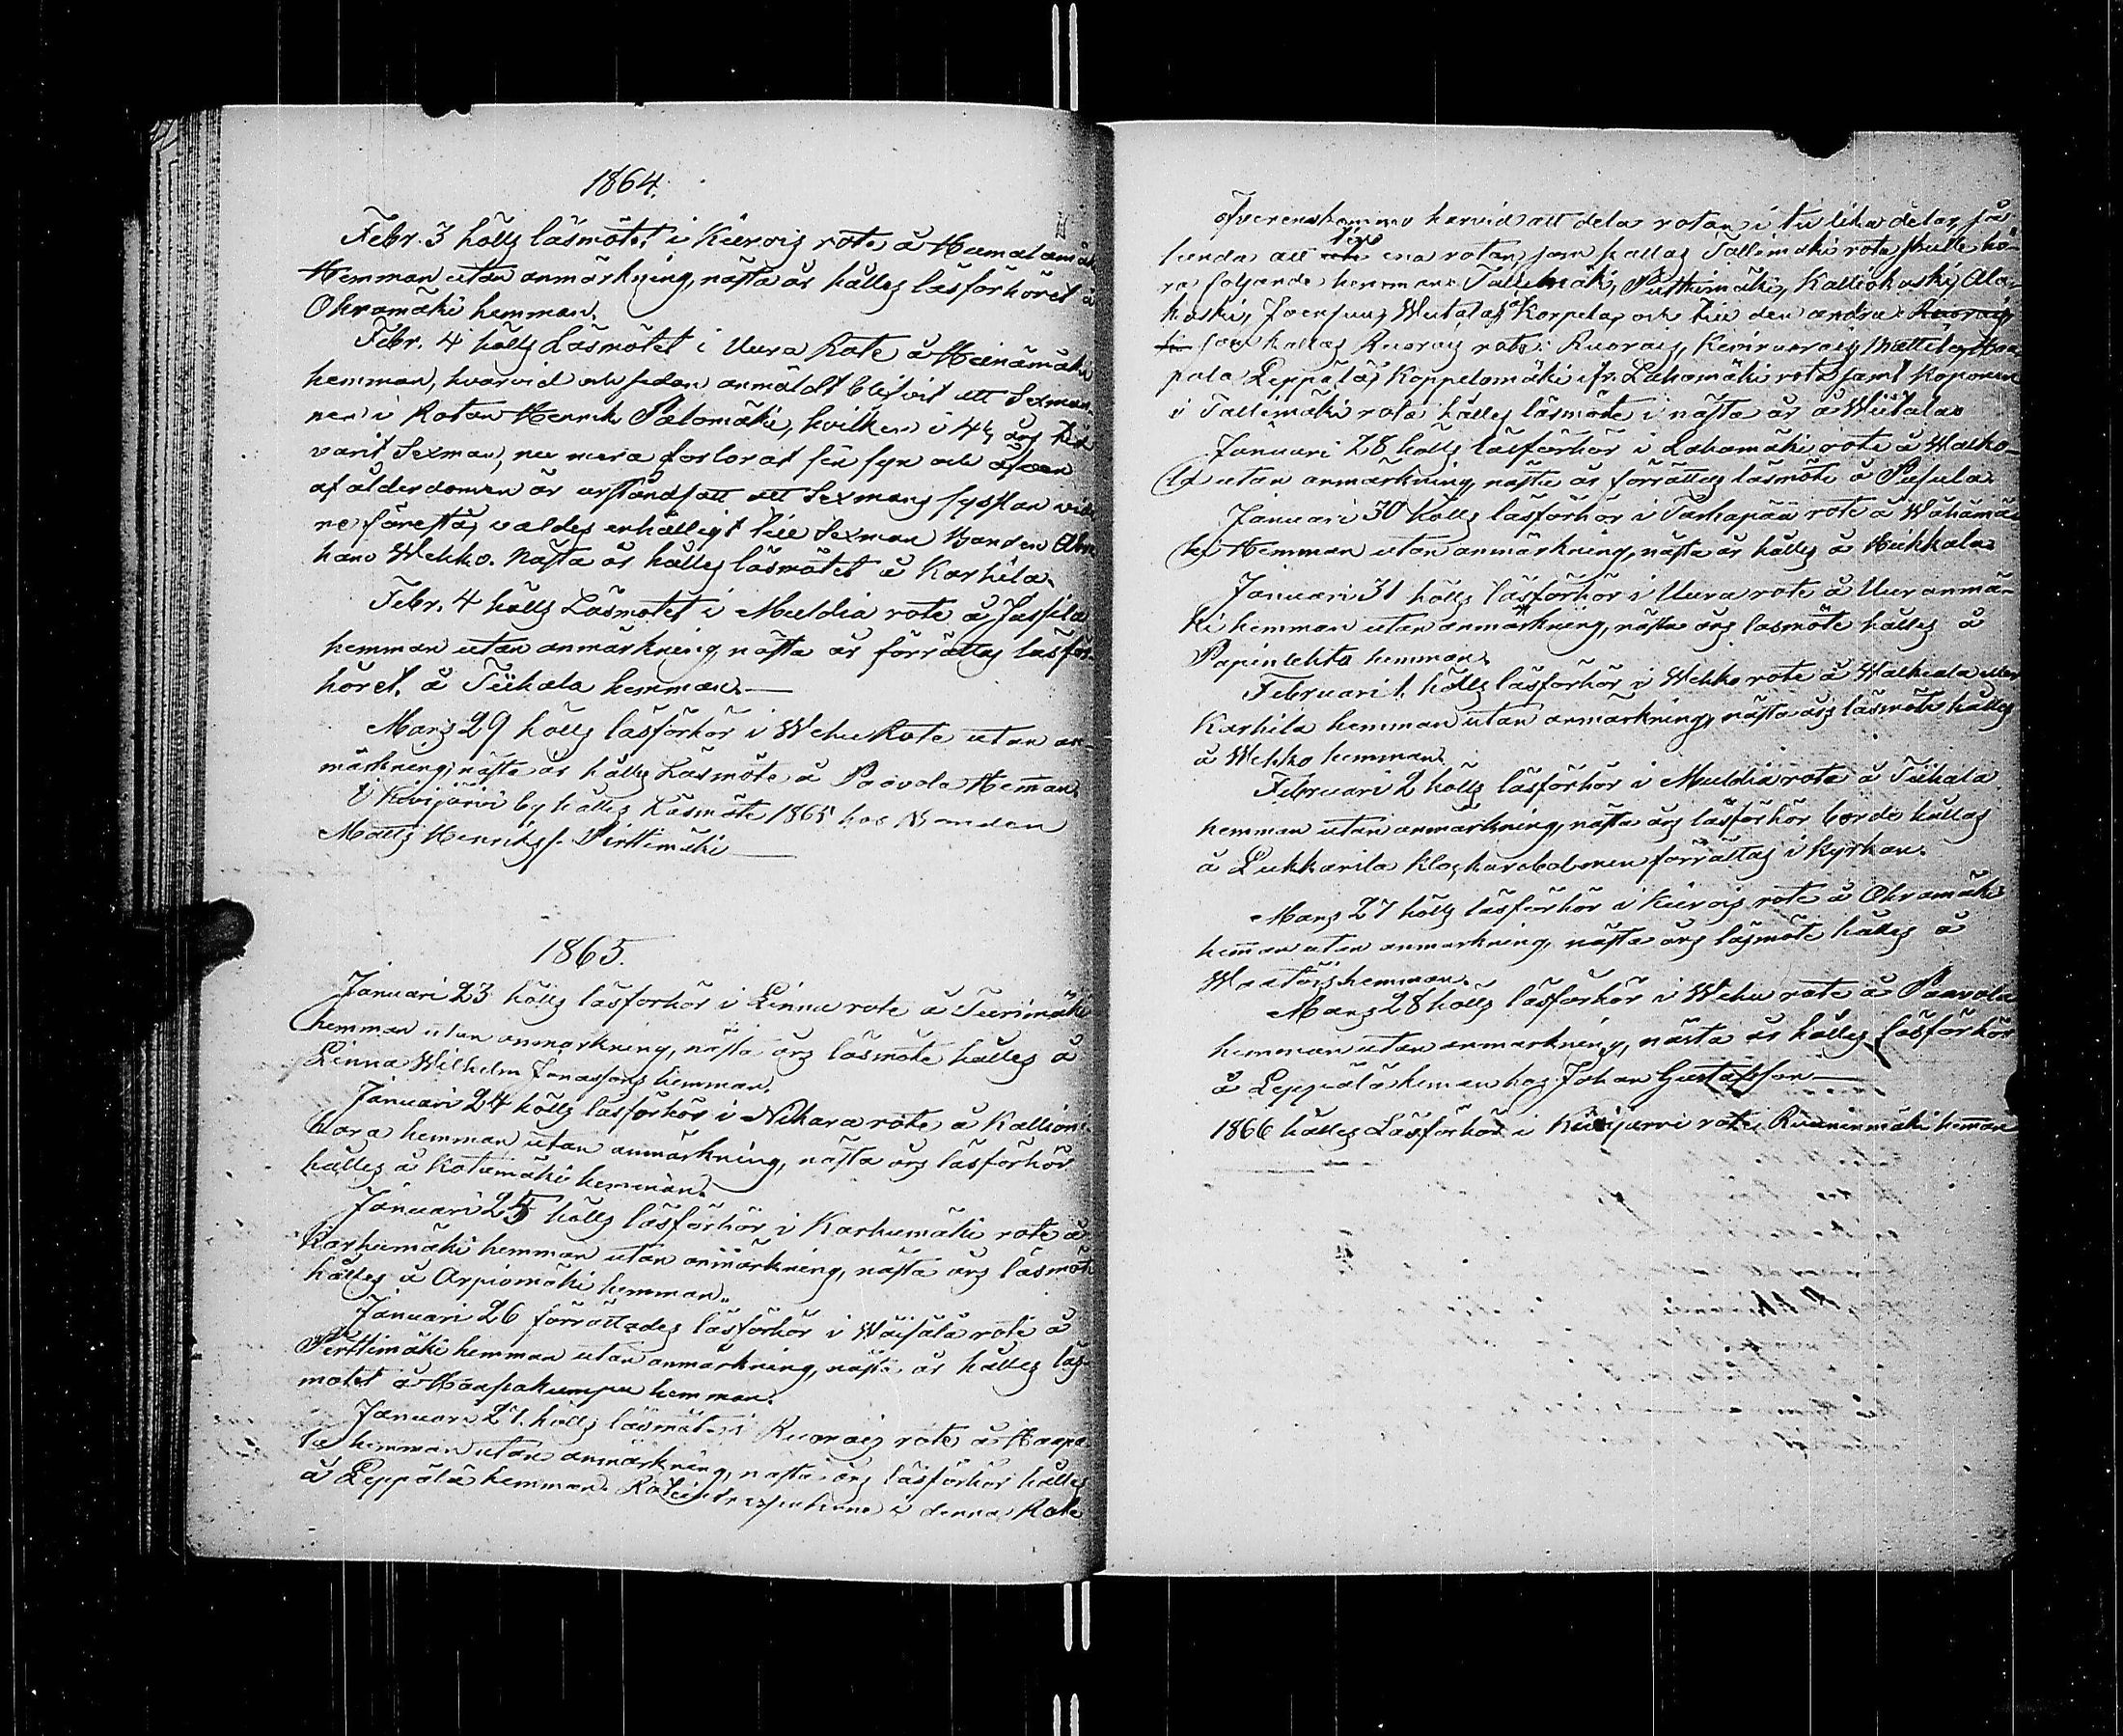 1864.
Febr. 3 hölls läsmötet i Kiiroig rote å Humalamäki
Hemman utan anmärkning, nästa år hålles läsförhöret å
Ohramäki hemman.
Febr. 4 hölls Läsmötet i Uura Rote å Heinämäki
hemman, hvarvid och sedan anmäldt blifvit att Sexman-
nen i Rotan Henrik Palomäki, hvilken i 45 års tid
varit Sexman, nu mera förlorat sin syn och äfven
af ålderdomen är urståndsatt att Sexmans sysslan vida-
re förestå, valdes enhälligt till Sexman Bonden Abra-
ham Wehko. Nästa år hålles läsmötet å Karhila.
Febr. 4 hölls Läsmötet i Muldia rote å Jussila
hemman utan anmärkning nästa år förrättas läsför-
höret å Tiihala hemman.
Mars 29 hölls läsförhör i Wehu Rote utan an-
märkning, nästa år hålles Läsmöte å Paavola Heman.
I Kivijärvi by hålles Läsmöte 1865 hos Bonden
Matts Henrikss. Pirttimäki
1865.
Januari 23 hölls läsförhör i Linna rote å Tuurimäki
hemman utan anmärkning, nästa års läsmöte hålles å
Linna Wilhelm Jonassons hemman.
Januari 24 hölls läsförhör i Nikara rote å Kallion-
vara hemman utan anmärkning, nästa års läsförhör
hålles å Kotamäki hemman.
Januari 25 hölls läsförhör i Karhumäki rote å
Karhumäki hemman utan anmärkning, nästa års läsmöte
hålles å Arpiomäki hemman.
Januari 26 förrättades läsförhör i Wäisälä rote å
Perttimäki hemman utan anmärkning, nästa år hålles läs-
mötet å Haapakumpu hemman.
Januari 27. hölls läsmöte i Ruorais rote å Haapa-
la hemman utan anmärkning, nästa års läsförhör hålles
å Leppälä hemman. Roteintressenterne i denna Rote
öfverenskommo härvid att dela rotan i tu lika delar, så
lunda att till ena rotan som kallas Tallimäki rote skulle hö-
ra följande hemman: Tallimäki, Pütkimäki, Kalliokoski, Ala-
koski, Joensuu, Wiitala, Korpela, och till den andra Ruorais
som kallas Ruorais rote: Ruorais, Kiviruorais, Mattila, Haa-
pala, Leppälä, Koppelomäki ifr. Lahomäki rote samt Koponen
i Tallimäki rote hålles läsmöte i nästa år å Wiitala
Januari 28 hölls läsförhör i Lahomäki rote å Walko-
la utan anmärkning nästa år förrättas läsmöte å Pusula.
Januari 30 hölls läsförhör i Tarhapää rote å Wähämä-
ki Hemman utan anmärkning, nästa år hålles å Hükkala
Januari 31 hölls läsförhör i Uura rote å Uuranmä-
ki hemman utan anmärkning, nästa års läsmöte hålles å
Papinlehto hemman.
Februari 1. hölls läsförhör i Wehko rote å Walkiala eller
Karhila hemman utan anmärkning, nästa års läsmöte hålles
å Wehko hemman.
Februari 2 hölls läsförhör i Muldia rote å Tiihala
hemman utan anmärkning, nästa års läsförhör borde hållas
å Lukkarila Klockarebol men förrättas i Kyrkan.
Mars 27 hölls läsförhör i Kiirois rote å Ohramäki
heman utan anmärkning, nästa års läsmöte hålles å
hemman.
Mars 28 hölls läsförhör i Wehu rote å Paavola
hemman utan anmärkning, nästa år hålles läsförhör
å Leppälä heman hos Johan Gustafsson
1866 hålles Läsförhör i Kivijärvi rote, heman